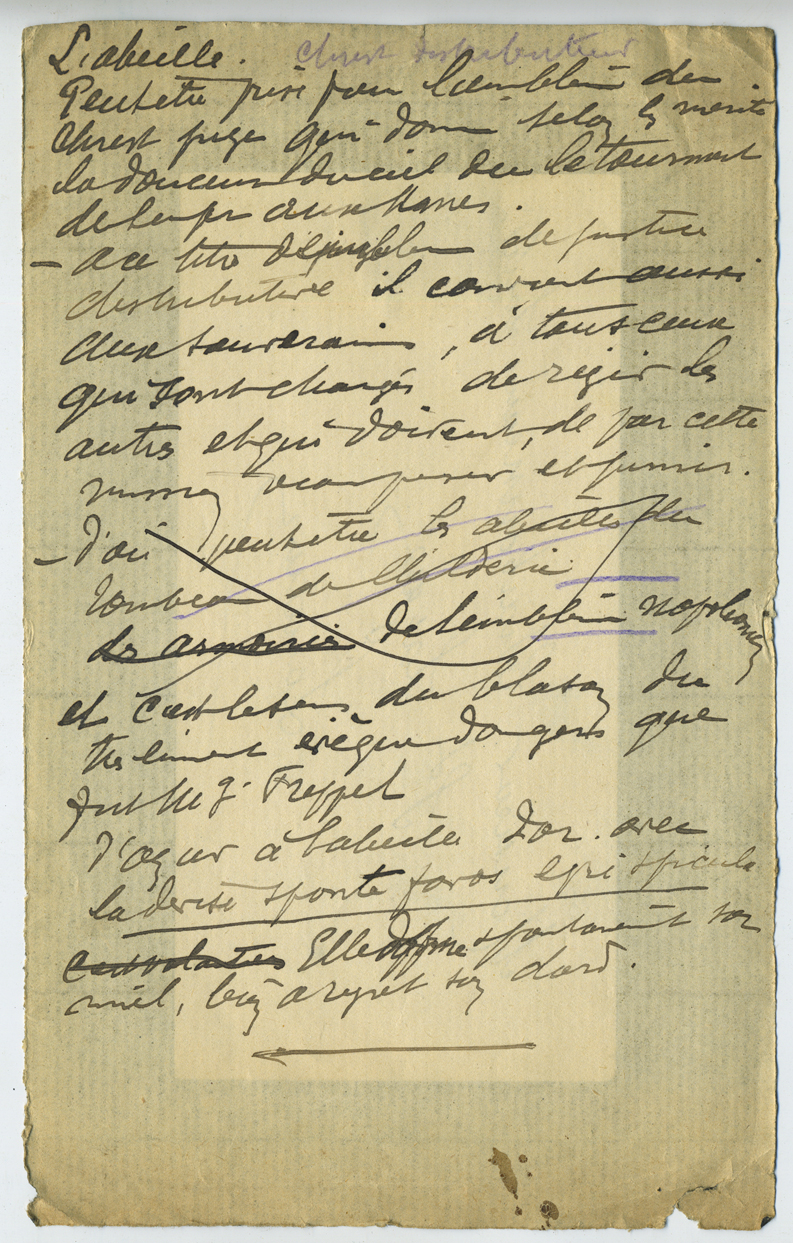 L'abeille. Christ distributeur
Peut être prise pour l'emblème du
Christ juge qui donne selon les mérites
la douceur du ciel ou le tourment
de l'enfer aux âmes.
– au titre d'emblème de justice
distributive il convient aussi
aux souverains, à tous ceux
qui sont chargés de régir les
autres et qui doivent, de par cette
mission récompenser et punir.
– D'où peut être les abeilles du
tombeau de Childéric
des armoiries de l'emblème napoléonien
et c'est le sens du blason du
très éminent évêque d'Angers que
fut Mgr Freppel
d'azur à l'abeille d'or. avec
la devise sponte favos egre spicula
Elle offre spontanément son
miel, bien à regret son dard.